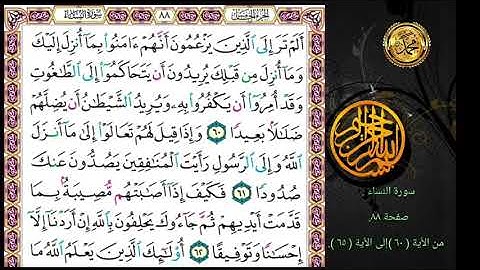 الجزء الخامس
٨٨
سورة النساء
أَلَمْ تَرَ إِلَى ٱلَّذِينَ يَزْعُمُونَ أَنَّهُمْ ءَامَنُوا۟ بِمَآ أُنزِلَ إِلَيْكَ
وَمَآ أُنزِلَ مِن قَبْلِكَ يُرِيدُونَ أَن يَتَحَاكَمُوٓا۟ إِلَى ٱلطَّـٰغُوتِ
وَقَدْ أُمِرُوٓا۟ أَن يَكْفُرُوا۟ بِهِۦ وَيُرِيدُ ٱلشَّيْطَـٰنُ أَن يُضِلَّهُمْ
ضَلَـٰلًۢا بَعِيدًا ٦٠ وَإِذَا قِيلَ لَهُمْ تَعَالَوْا۟ إِلَىٰ مَآ أَنزَلَ
ٱللَّهُ وَإِلَى ٱلرَّسُولِ رَأَيْتَ ٱلْمُنَـٰفِقِينَ يَصُدُّونَ عَنكَ
صُدُودًا ٦١ فَكَيْفَ إِذَآ أَصَـٰبَتْهُم مُّصِيبَةٌۢ بِمَا
قَدَّمَتْ أَيْدِيهِمْ ثُمَّ جَآءُوكَ يَحْلِفُونَ بِٱللَّهِ إِنْ أَرَدْنَآ إِلَّآ
إِحْسَـٰنًا وَتَوْفِيقًا ٦٢ أُو۟لَـٰٓئِكَ ٱلَّذِينَ يَعْلَمُ ٱللَّهُ مَا
محمد
بسم الله الرحمن الرحيم
سورة النساء .
صفحة ٨٨.
من الآية ( ٦٠ )إلى الآية ( ٦٥ ).